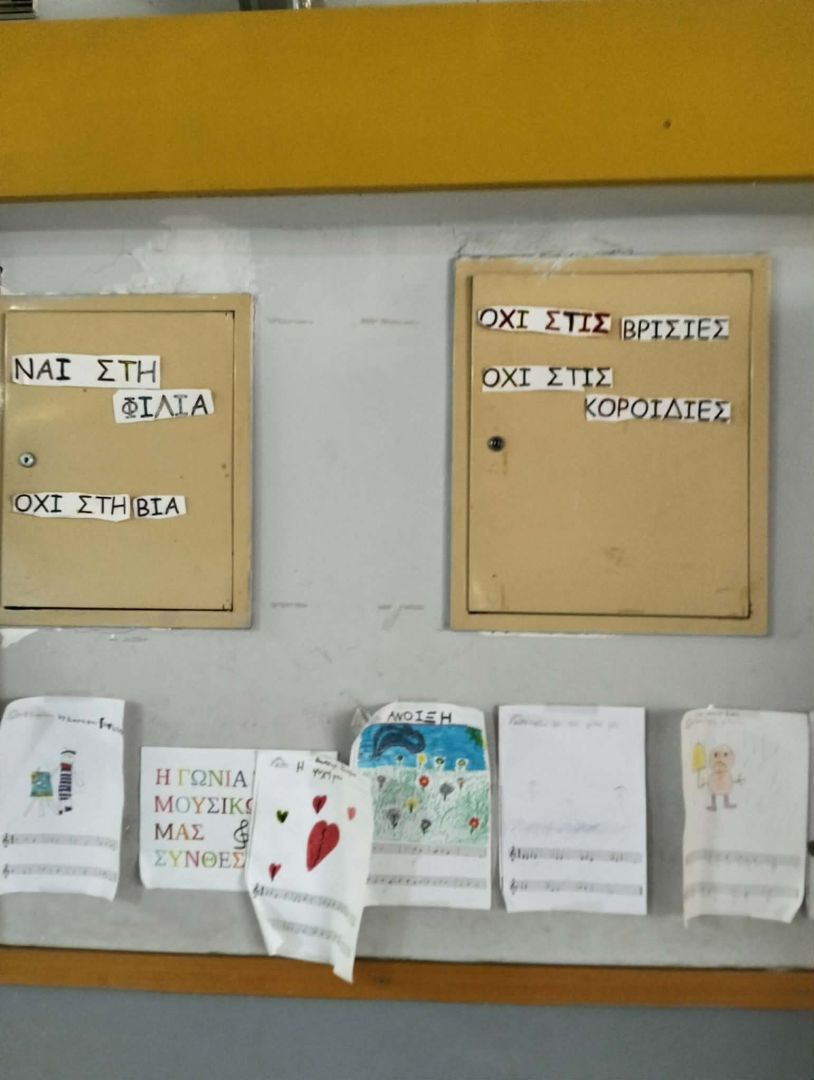 ΝΑΙ ΣΤΗ
ΦΙΛΙΑ
ΟΧΙ ΣΤΗ ΒΙΑ
ΟΧΙ ΣΤΙΣ ΒΡΙΣΙΕΣ
ΟΧΙ ΣΤΙΣ
ΚΟΡΟΙΔΙΕΣ
Η ΓΩΝΙΑ
ΜΟΥΣΙΚΟ
ΜΑΣ
ΣΥΝΘΕΣ
Η
ΑΝΟΙΞΗ